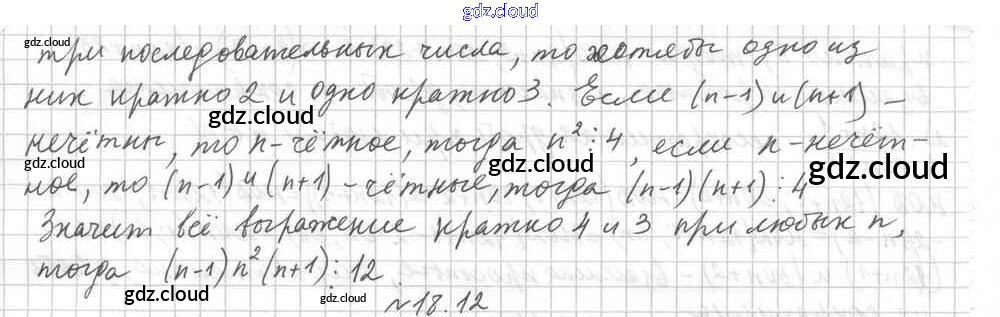 gdz.cloud
gdz.cloud
три последовательных числа, то хотябы одно из
них кратно 2 и одно кратно 3. Если (n-1) и (n+1) –
gdz.cloud gdz.cloud
нечётны, то n-чётное, тогда n²⋮4, если n-нечёт-
gdz.cloud gdz.cloud gdz.cloud
ное, то (n-1) и (n+1) – чётные, тогда (n-1)(n+1)⋮4
Значит всё выражение кратно 4 и 3 при любых n,
тогда (n-1)n²(n+1)⋮12
gdz.cloud gdz.cloud gdz.cloud
№18.12